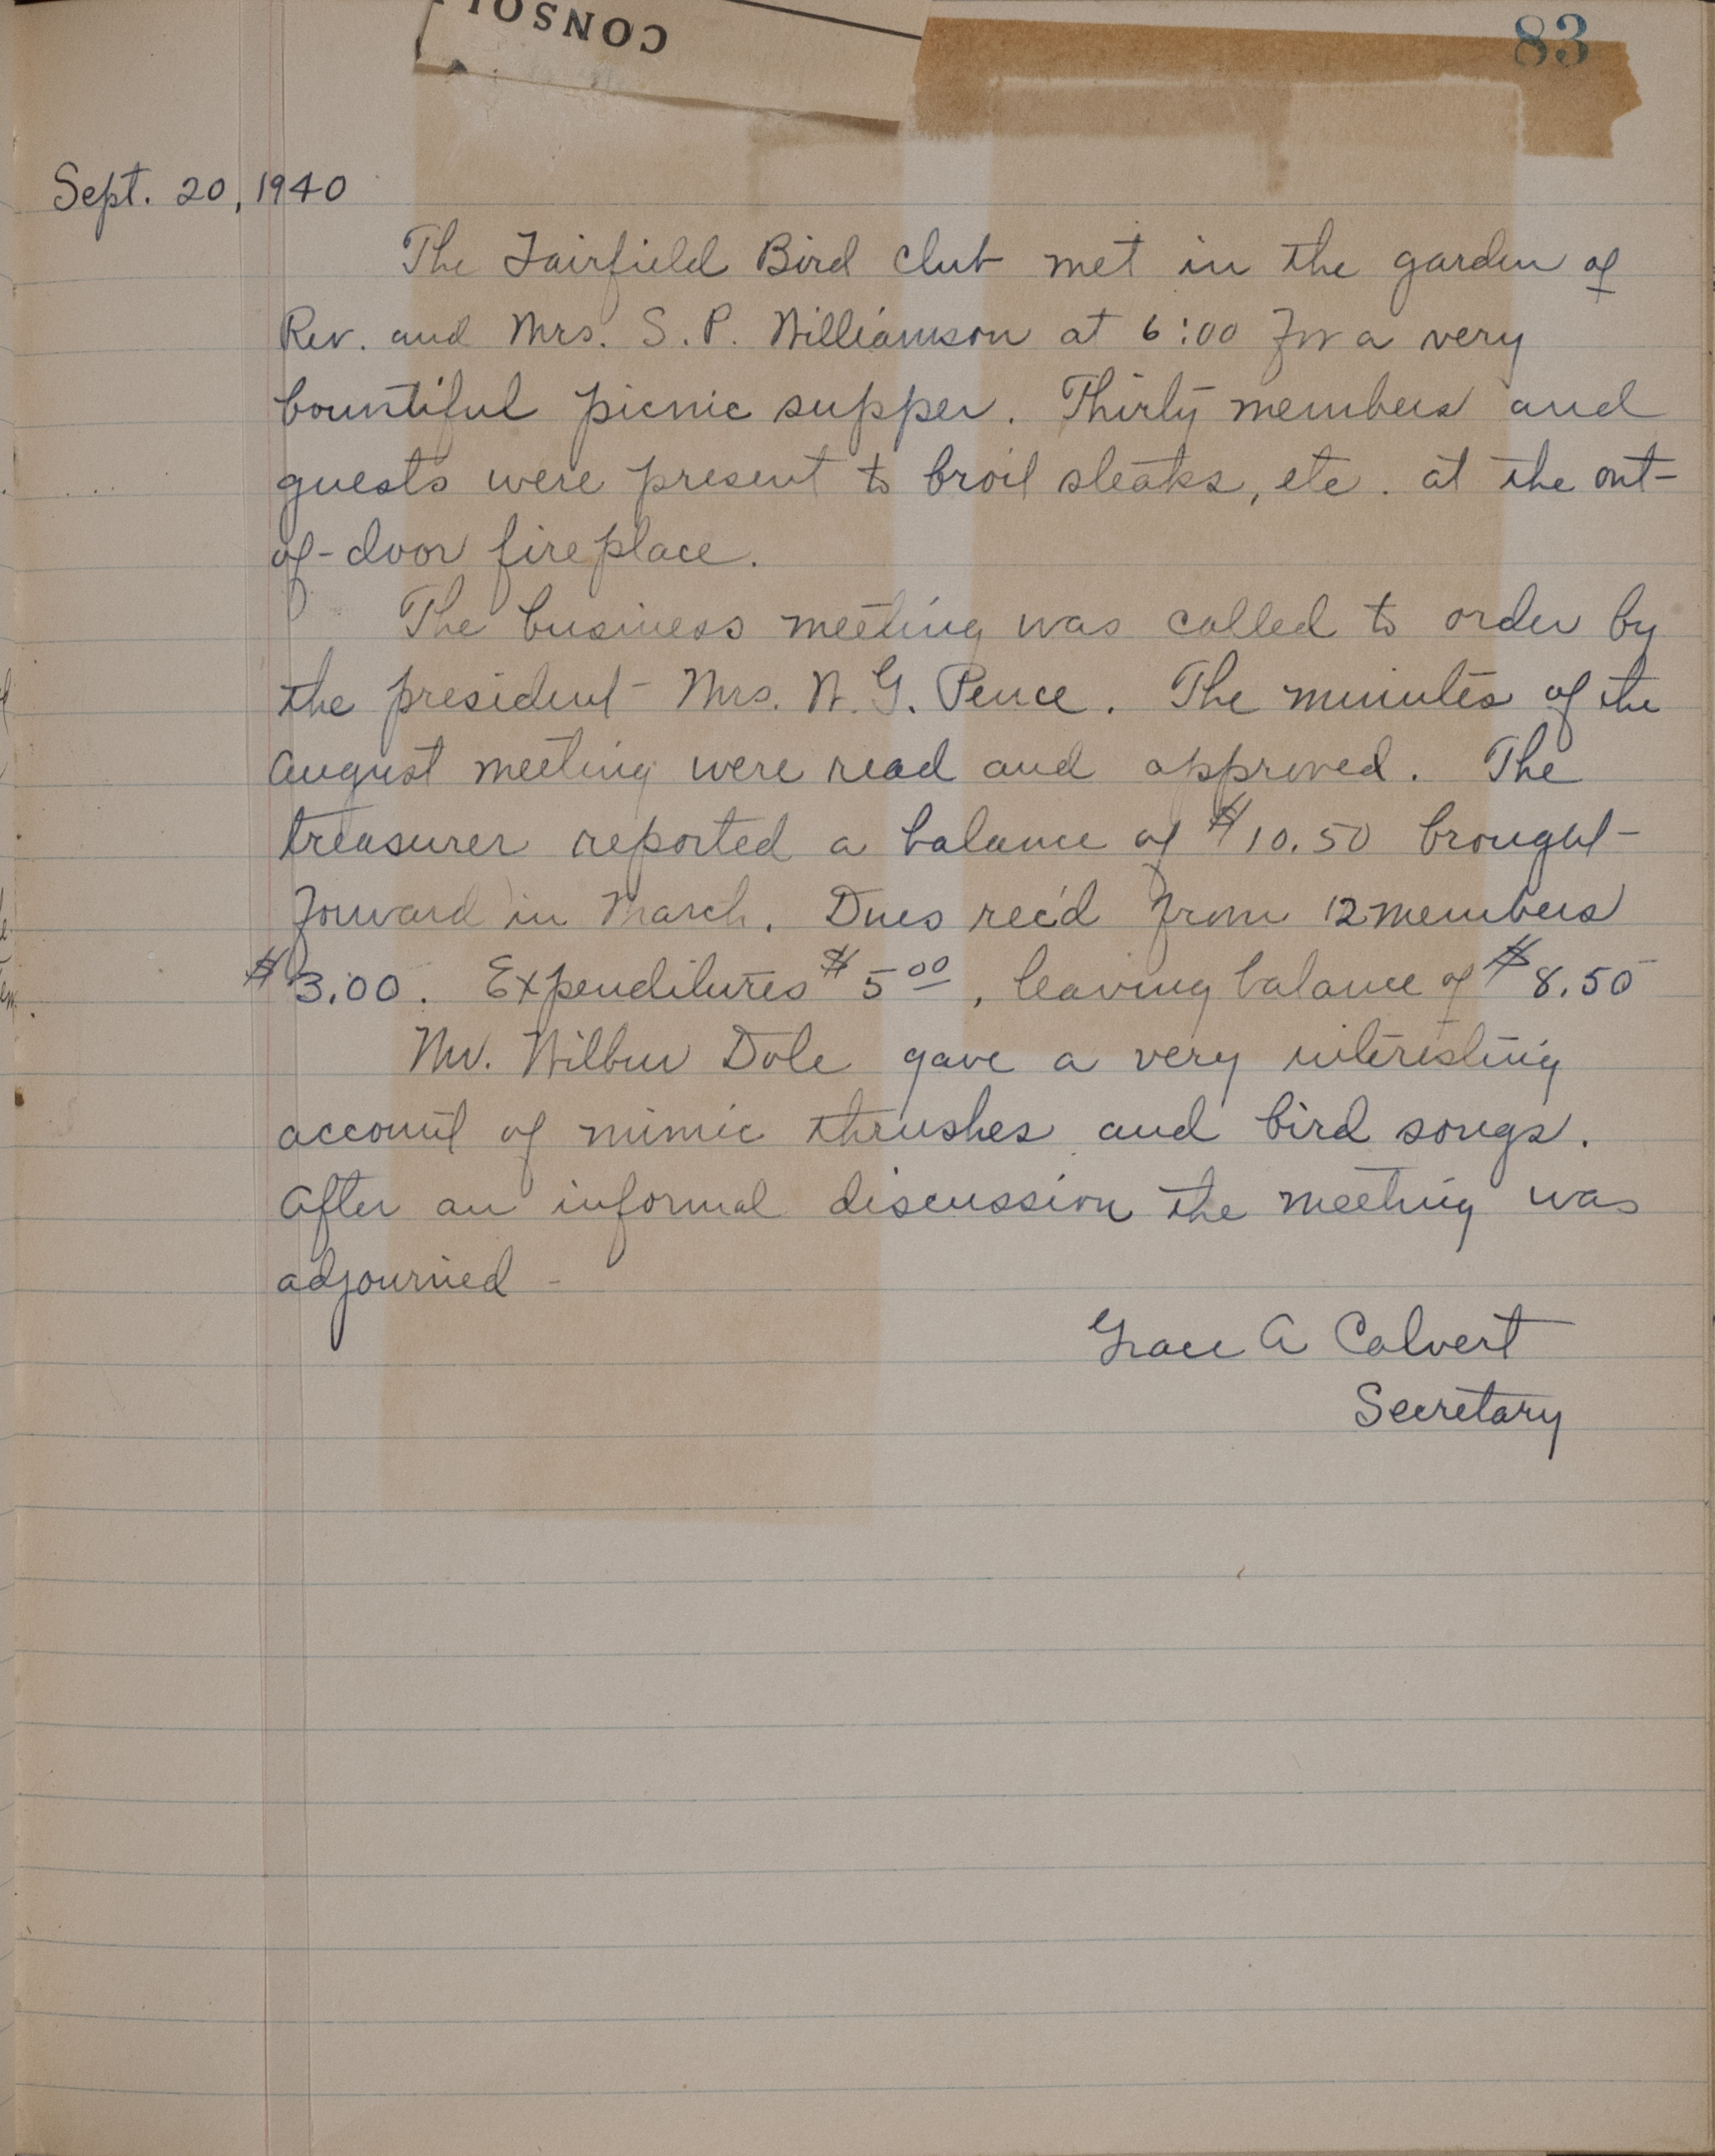 CONSOL
83
Sept. 20, 1940
The Fairfield Bird club met in the garden of
Rev. and Mrs. S. P. Williamson at 6:00 for a very
bountiful picnic supper. Thirty members and
guests were present to broil steaks, etc. at the out-
of-door fireplace.
The business meeting was called to order by
the president - Mrs. W. G. Pence. The minutes of the
August meeting were read and approved. The
treasurer reported a balance of $10.50 brought
forward in March. Dues rec'd from 12 members
$3.00. Expenditures $5 00, leaving balance of $8.50
Mr. Wilbur Dole gave a very interesting
account of mimic thrushes and bird songs.
After an informal discussion the meeting was
adjourned -
Grace A Calvert
Secretary